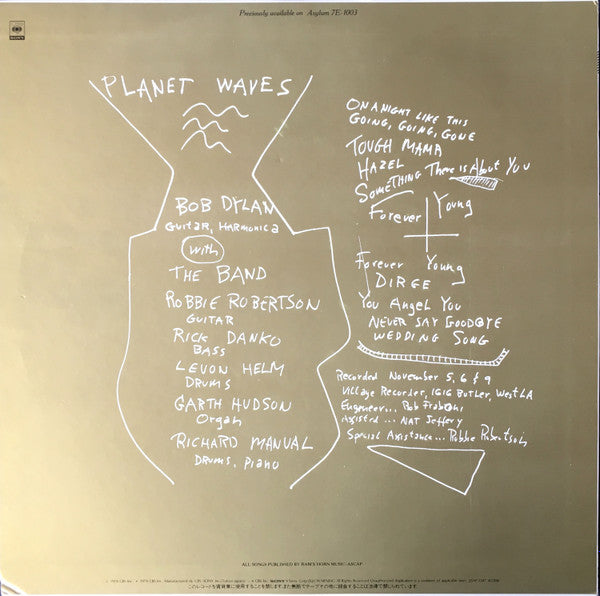 Previously available on Asylum 7E-1003
CBS
SONY
PLANET WAVES
BOB DYLAN
GUITAR, HARMONICA
with
THE BAND
ROBBIE ROBERTSON
GUITAR
RICK DANKO
BASS
LEVON HELM
DRUMS
GARTH HUDSON
Organ
RICHARD MANUAL
DRUMS, PIANO
ON A NIGHT LIKE THIS
GOING, GOING, GONE
TOUGH MAMA
HAZEL
SOMETHING There is About You
Forever Young
Forever Young
DIRGE
You Angel You
NEVER SAY GOODBYE
WEDDING SONG
Recorded November 5, 6 & 9
Village Recorder, 1616 Butler, West LA
Engeneer... Rob Fraboni
Assisted... NAT Jeffery
Special Assistance... Robbie Robertson
ALL SONGS PUBLISHED BY RAM'S HORN MUSIC-ASCAP
このレコードを賃貸業に使用することを禁じます。また無断でテープその他に録音することは法律で禁じられています